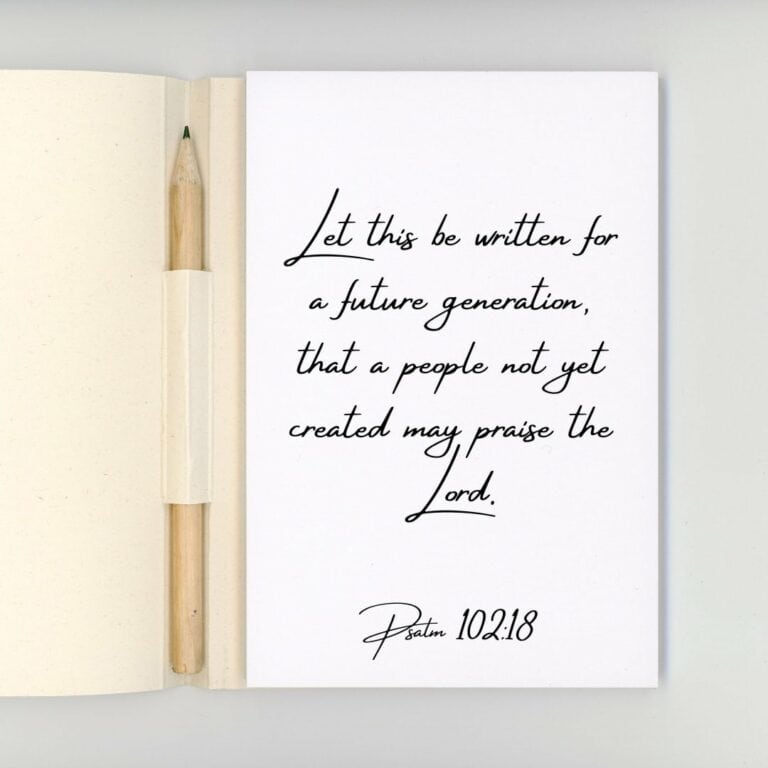 Let this be written for
a future generation,
that a people not yet
created may praise the
Lord.
Psalm 102:18